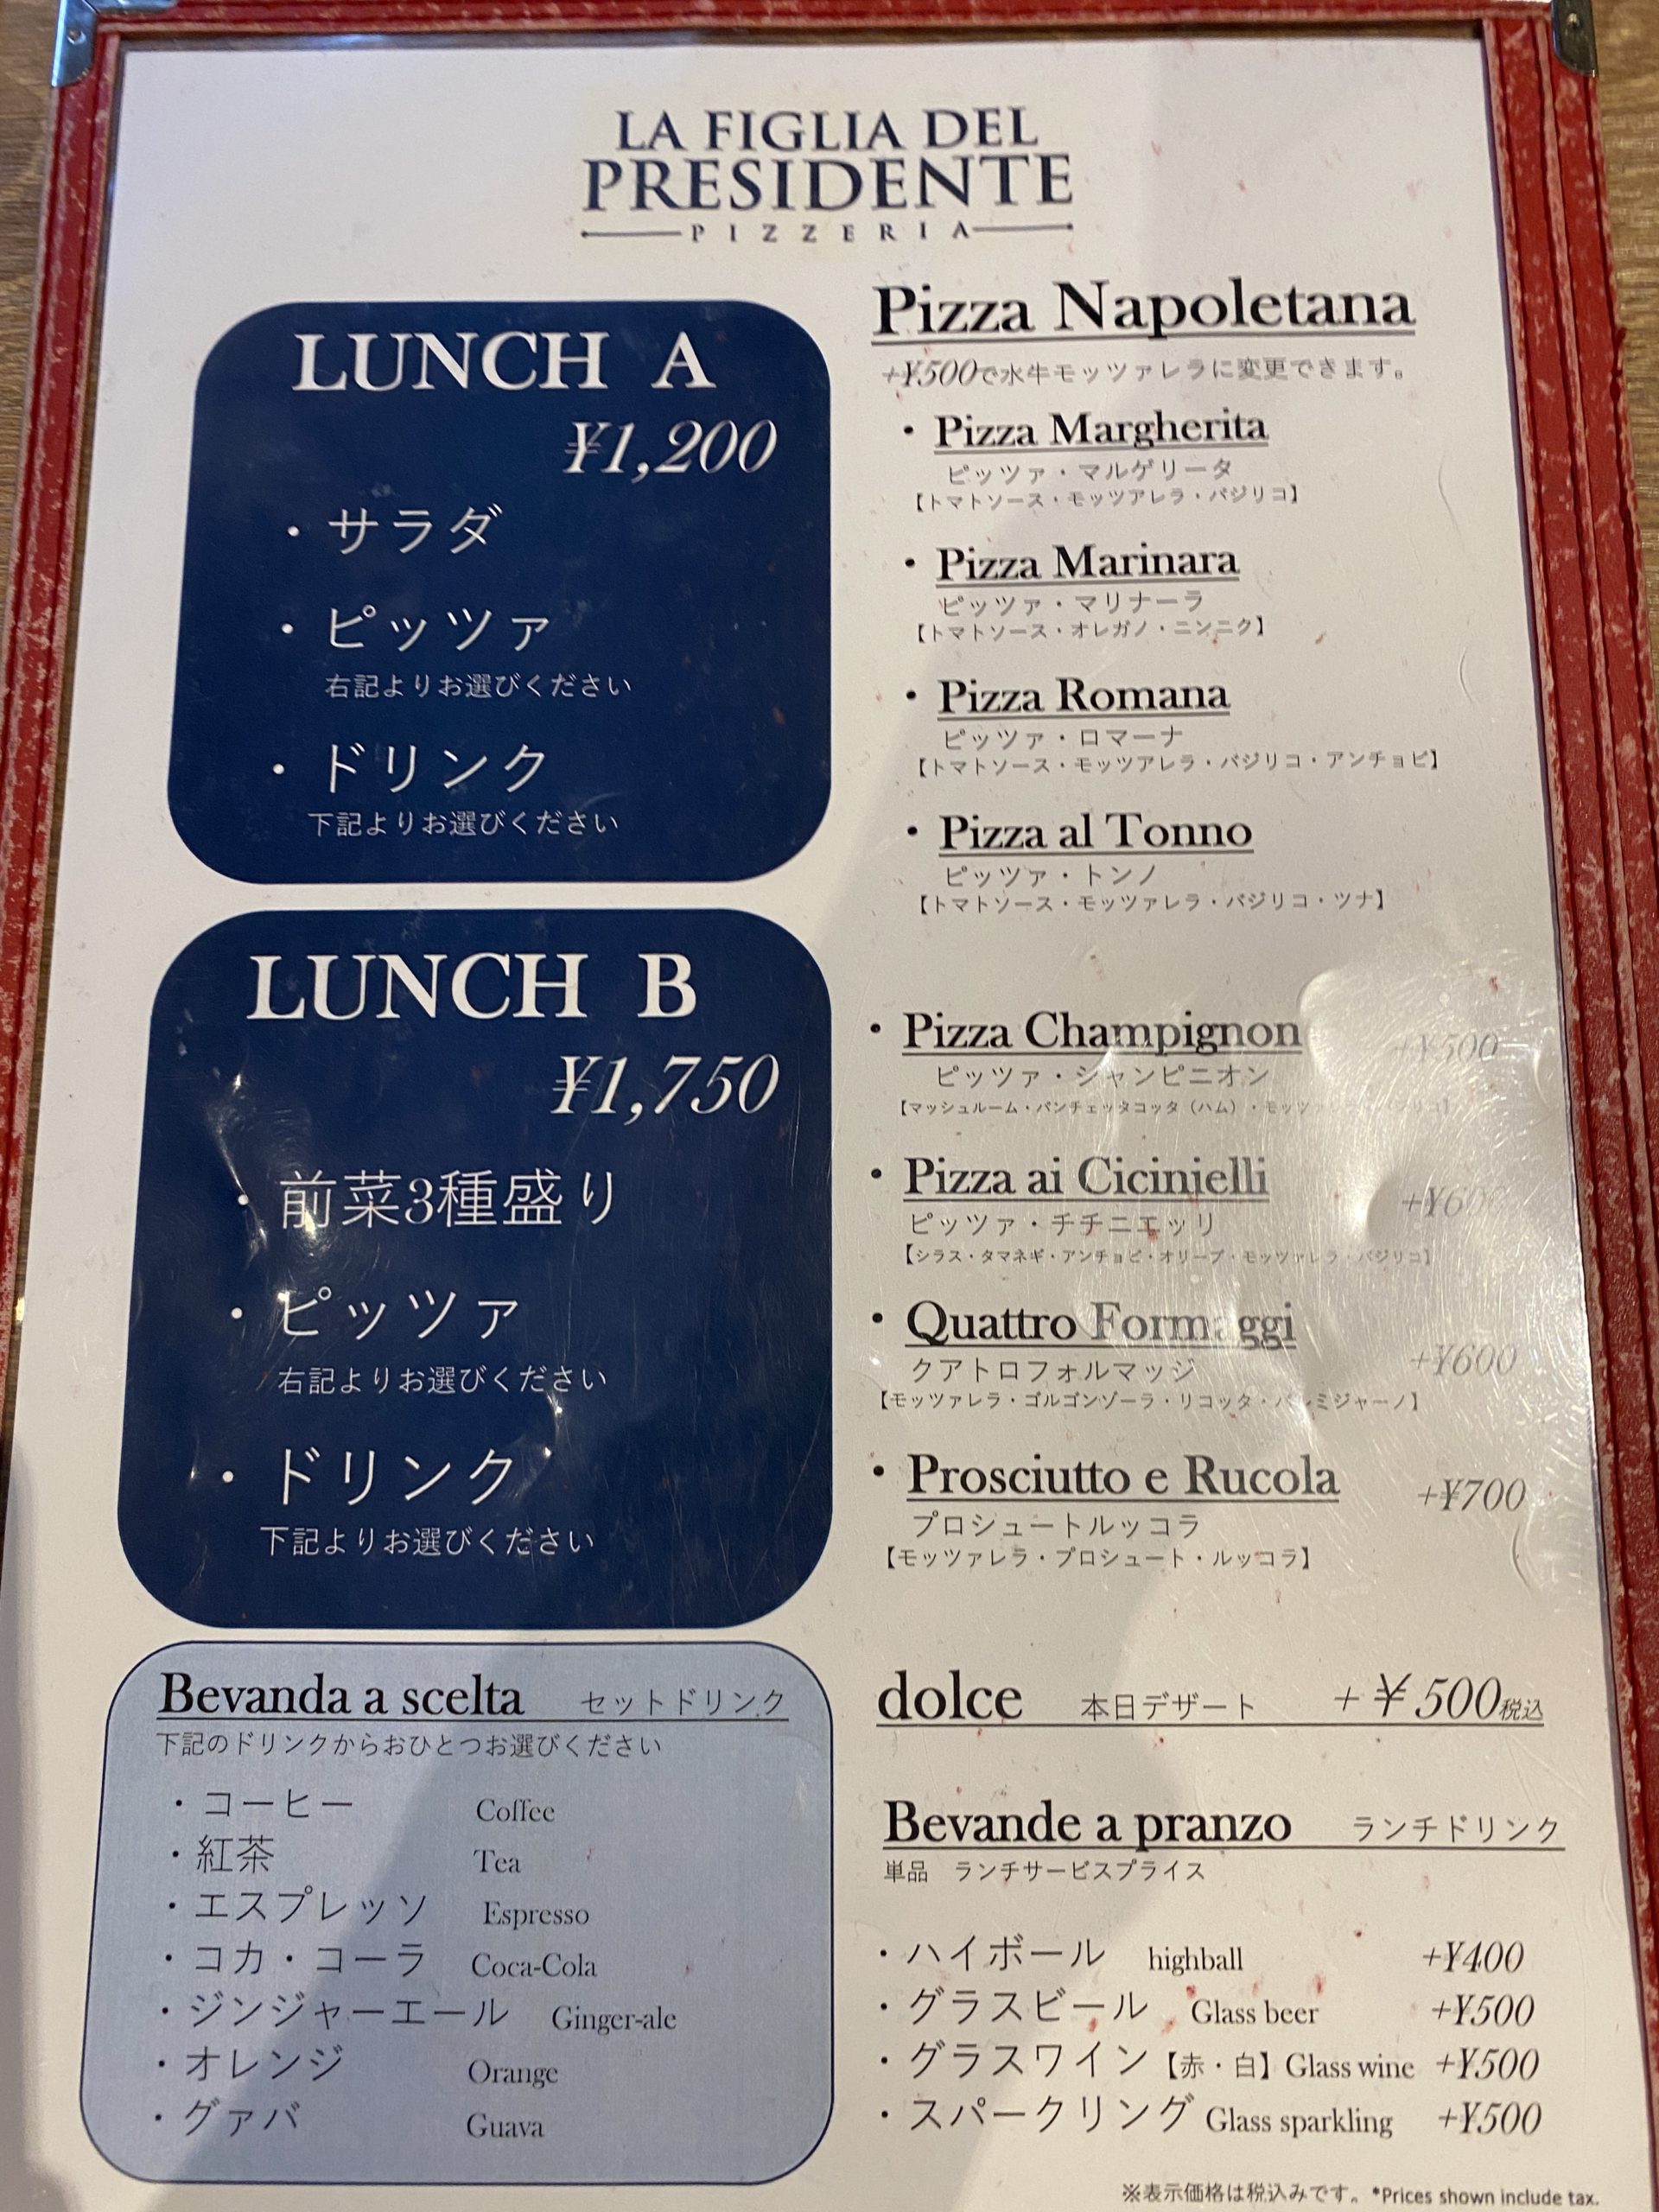 LA FIGLIA DEL
PRESIDENTE
PIZZERIA
LUNCH A
¥1,200
・サラダ
・ピッツァ
右記よりお選びください
・ドリンク
下記よりお選びください
LUNCH B
¥1,750
・前菜3種盛り
・ピッツァ
右記よりお選びください
・ドリンク
下記よりお選びください
Bevanda a scelta セットドリンク
下記のドリンクからおひとつお選びください
・コーヒー Coffee
・紅茶 Tea
・エスプレッソ Espresso
・コカ・コーラ Coca-Cola
・ジンジャーエール Ginger-ale
・オレンジ Orange
・グァバ Guava
Pizza Napoletana
+¥500で水牛モッツァレラに変更できます。
・Pizza Margherita
ピッツァ・マルゲリータ
【トマトソース・モッツアレラ・バジリコ】
・Pizza Marinara
ピッツァ・マリナーラ
【トマトソース・オレガノ・ニンニク】
・Pizza Romana
ピッツァ・ロマーナ
【トマトソース・モッツアレラ・バジリコ・アンチョビ】
・Pizza al Tonno
ピッツァ・トンノ
【トマトソース・モッツァレラ・バジリコ・ツナ】
・Pizza Champignon +¥500
ピッツァ・シャンピニオン
【マッシュルーム・パンチェッタコッタ（ハム）・
・Pizza ai Cicinielli +¥600
ピッツァ・チチニエッリ
【シラス・タマネギ・アンチョビ・オリーブ・モッツァレラ・バジリコ】
・Quattro Formaggi +¥600
クアトロフォルマッジ
【モッツァレラ・ゴルゴンゾーラ・リコッタ・パルミジャーノ】
・Prosciutto e Rucola +¥700
プロシュートルッコラ
【モッツァレラ・プロシュート・ルッコラ】
dolce 本日デザート +¥500税込
Bevande a pranzo ランチドリンク
単品 ランチサービスプライス
・ハイボール highball +¥400
・グラスビール Glass beer +¥500
・グラスワイン【赤・白】Glass wine +¥500
・スパークリング Glass sparkling +¥500
※表示価格は税込みです。*Prices shown include tax.